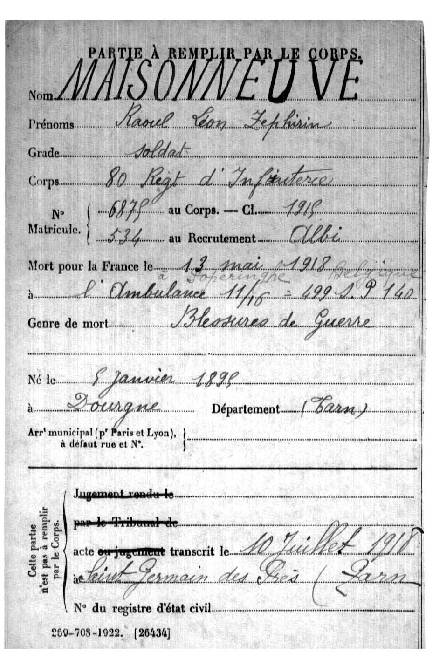 PARTIE À REMPLIR PAR LE CORPS.
Nom MAISONNEUVE
Prénoms Raoul Léon Zephirin
Grade soldat
Corps 80 Régt d'Infanterie
N° Matricule. 6875 au Corps. — Cl. 1915
534 au Recrutement Albi
Mort pour la France le 13 mai 1918
à Poperinghe Belgique
à l'Ambulance 11/16 = 499 S.P 140
Genre de mort Blessures de Guerre
Né le 5 Janvier 1895
à Dourgne Département (Tarn)
Arrt municipal (pr Paris et Lyon),
à défaut rue et N°.
Cette partie n'est pas à remplir par le Corps.
Jugement rendu le
par le Tribunal de
acte ou jugement transcrit le 10 Juillet 1918
à Saint Germain des Près (Tarn
N° du registre d'état civil
269-708-1922. [26434]